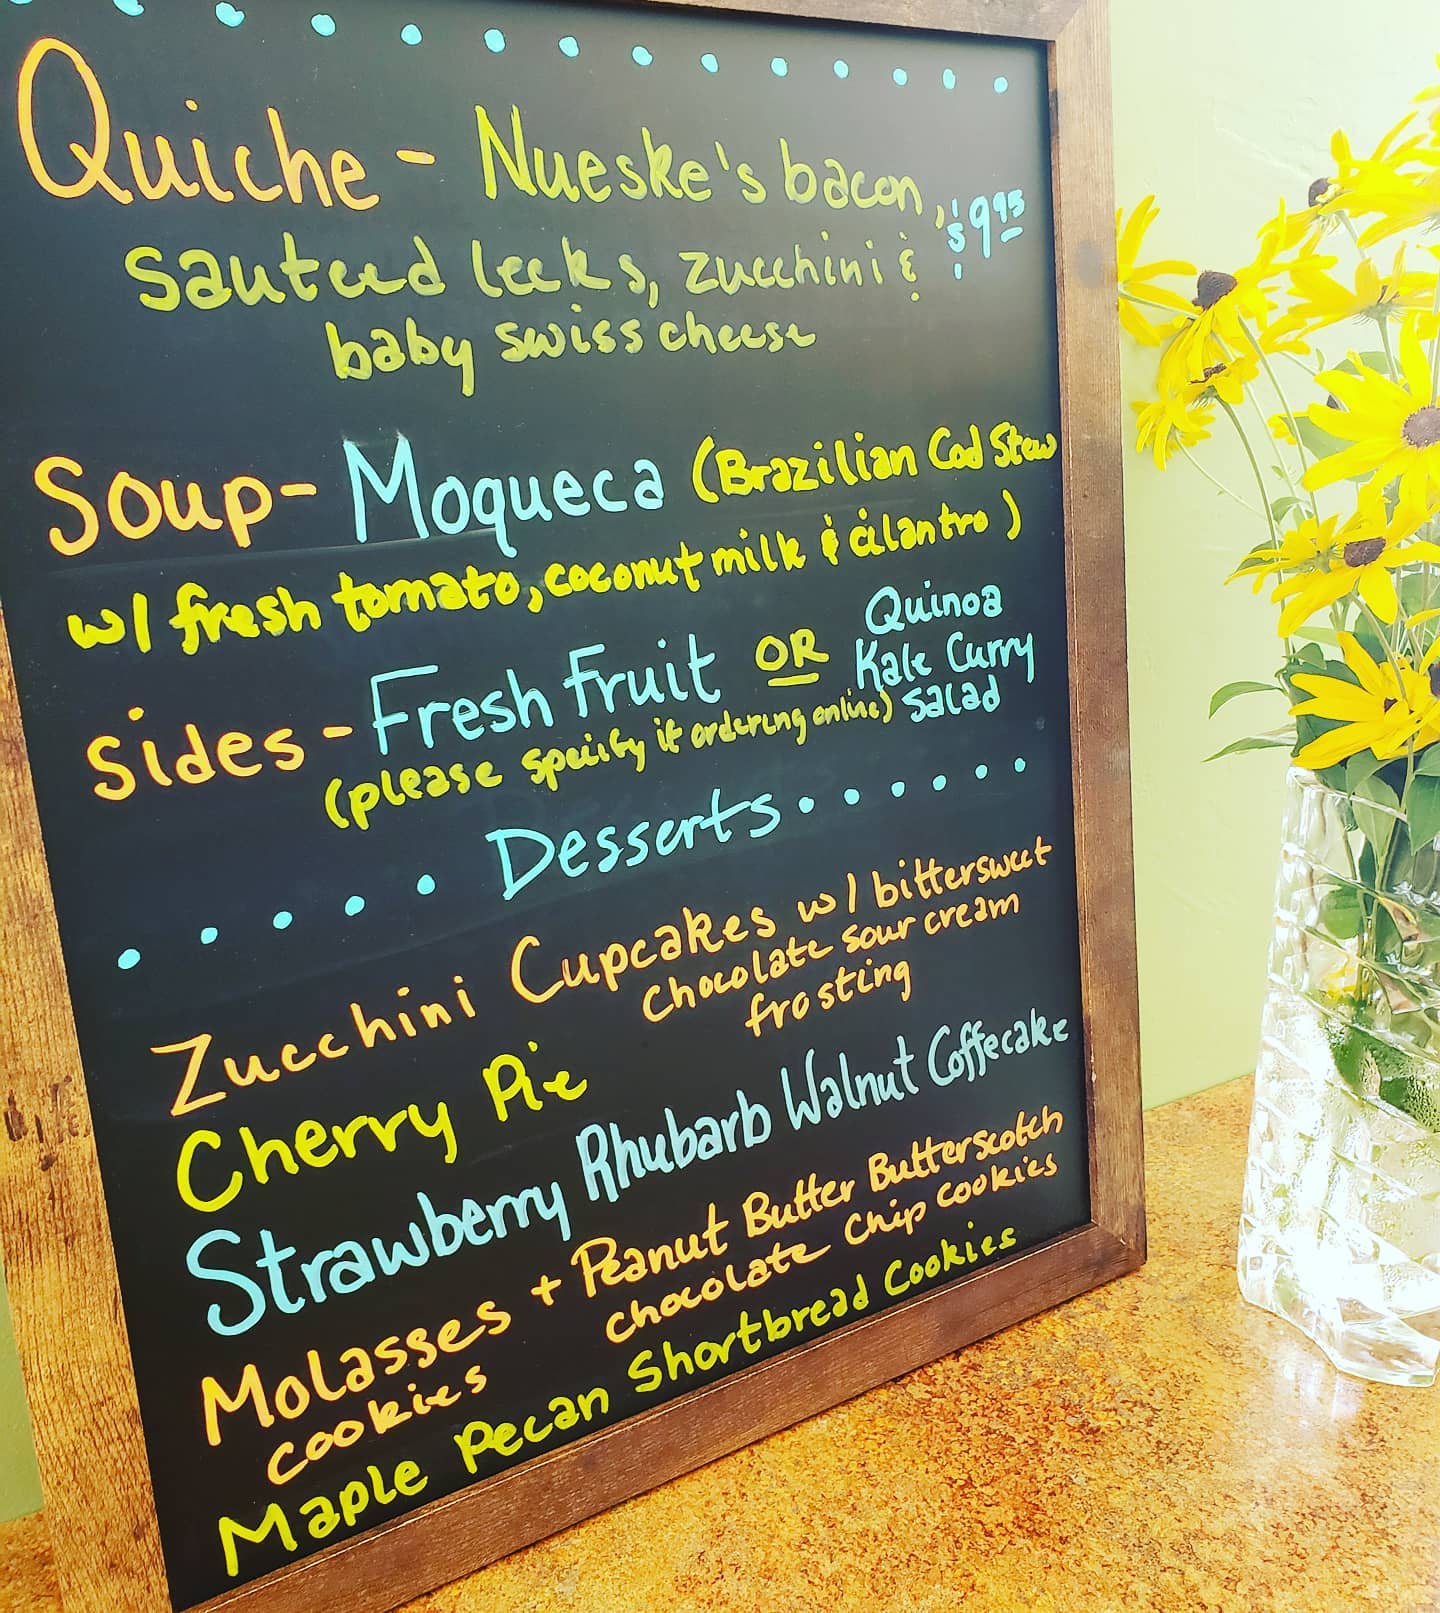 Quiche - Nueske's bacon, $9.95
sauteed leeks, zucchini &
baby swiss cheese
Soup - Moqueca (Brazilian Cod Stew
w/ fresh tomato, coconut milk & cilantro)
Sides - Fresh Fruit OR Quinoa
Kale Curry
Salad
(please specify if ordering online)
Desserts
Zucchini Cupcakes w/ bittersweet
chocolate sour cream
frosting
Cherry Pie
Strawberry Rhubarb Walnut Coffecake
Molasses + Peanut Butter Butterscotch
cookies chocolate chip cookies
Maple Pecan Shortbread Cookies